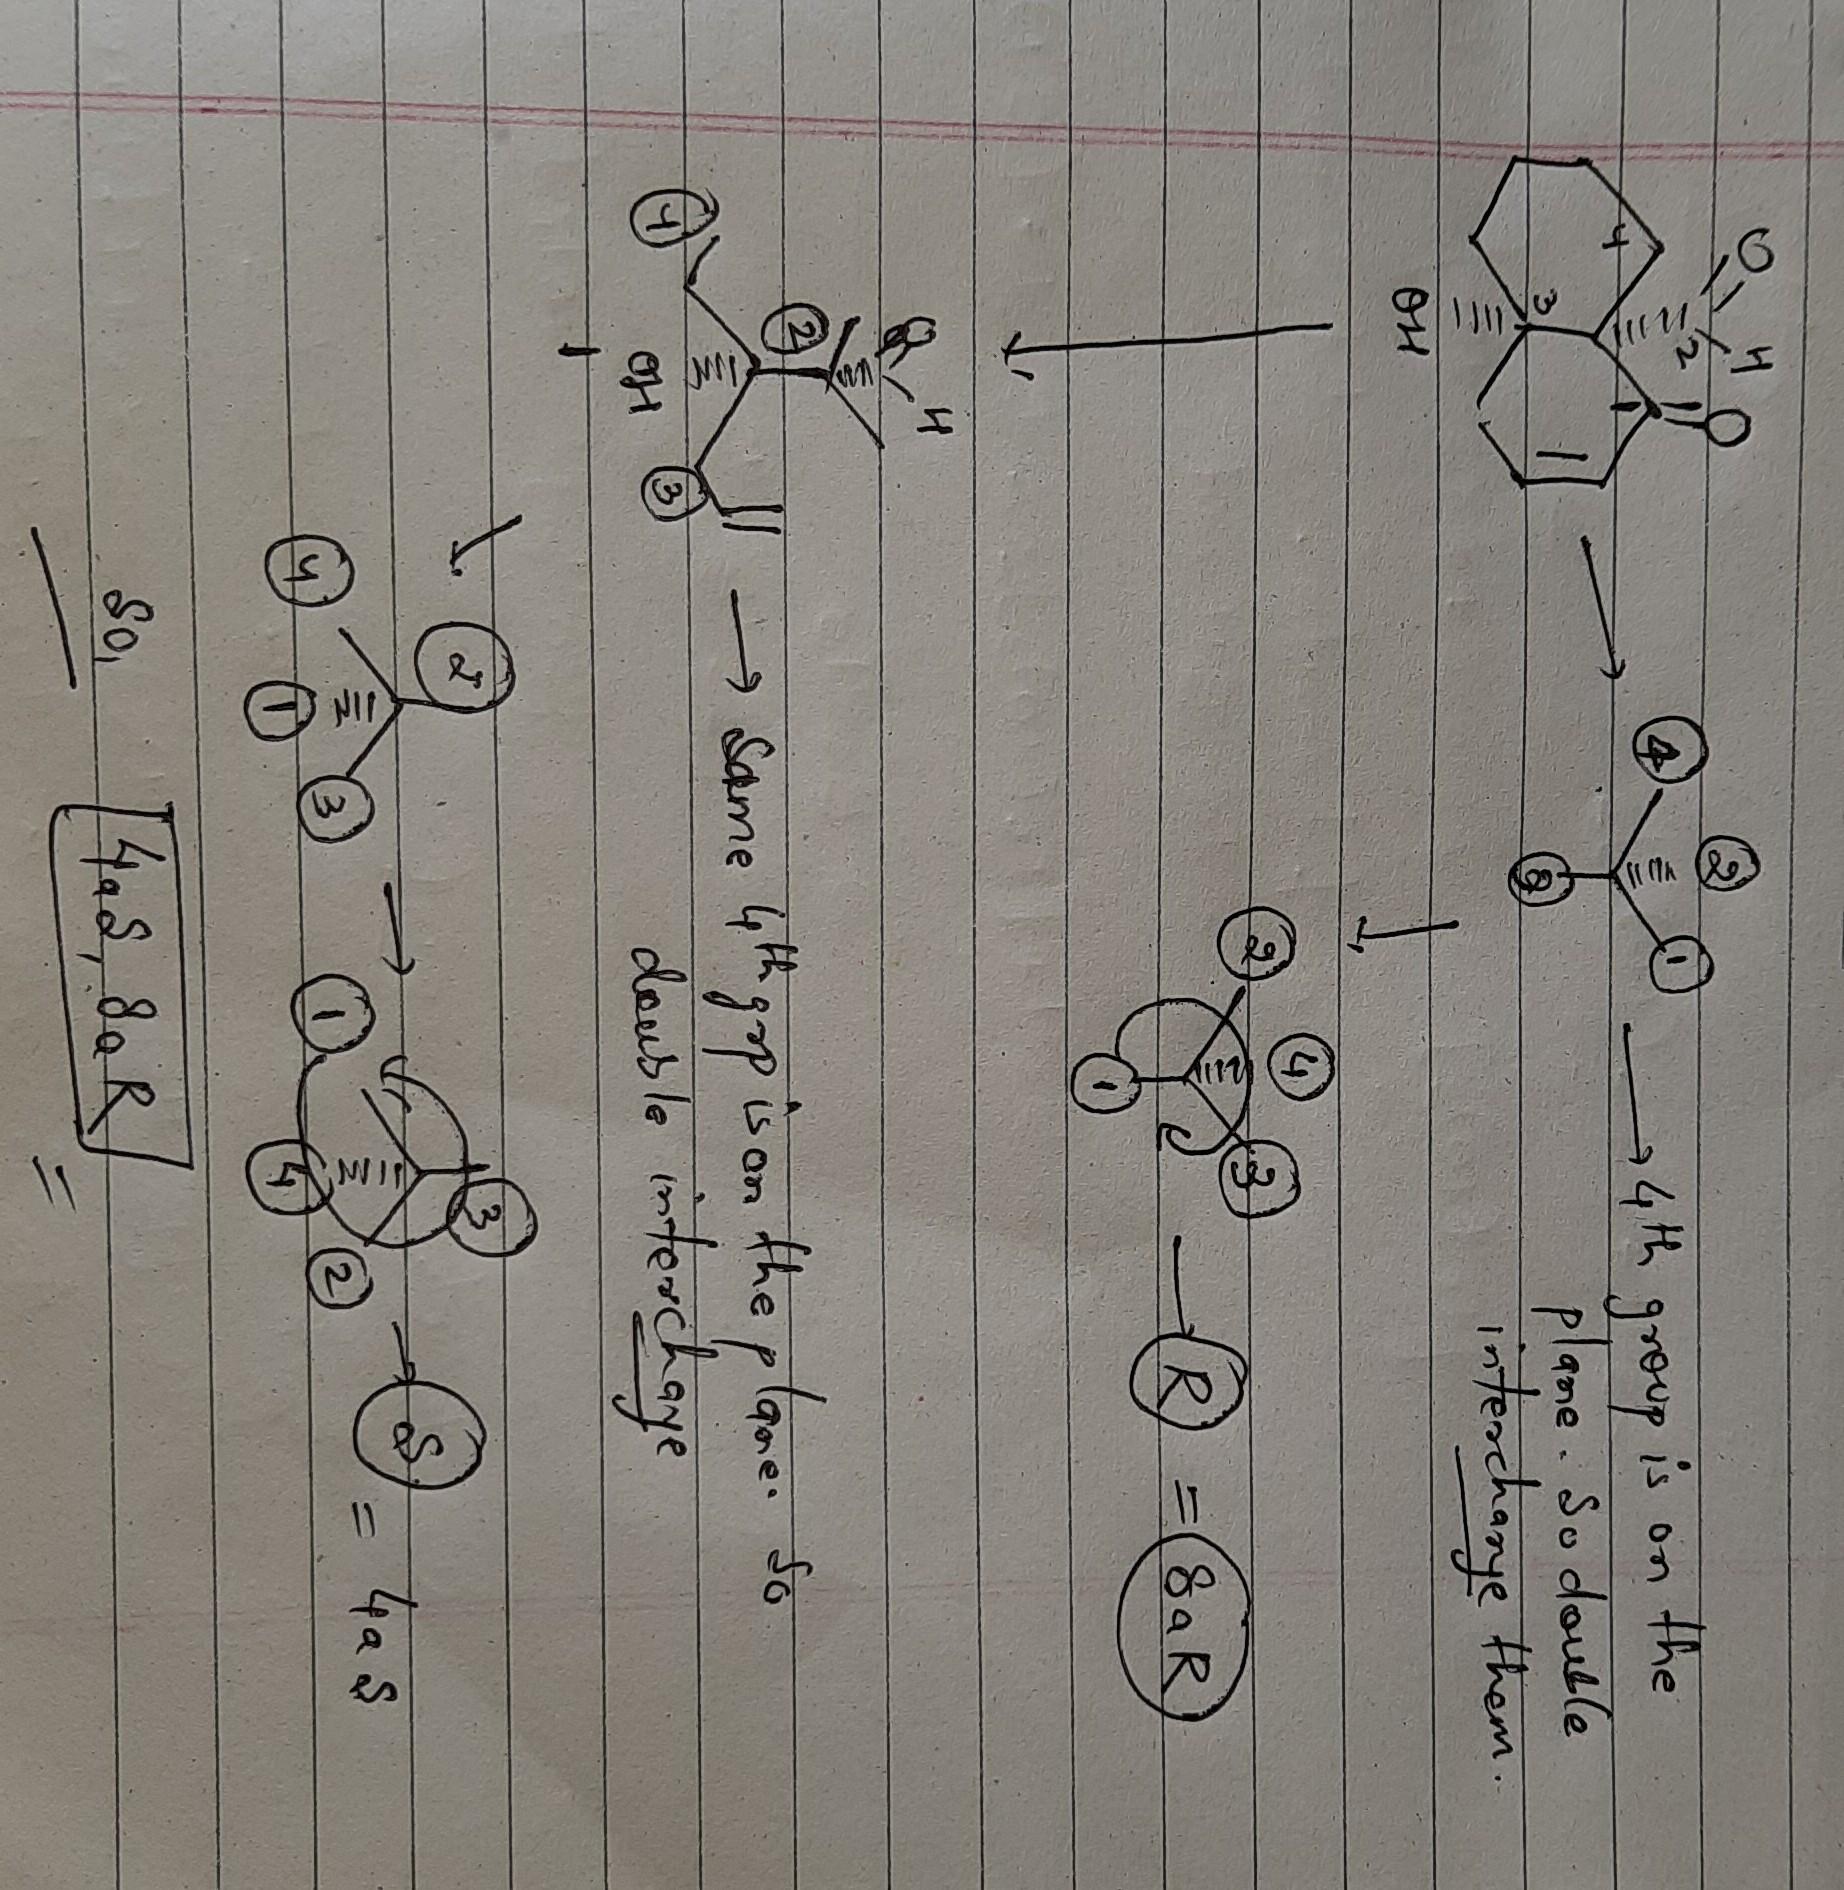 O H O
4 2
3
OH
4 2 1 3
→ 4th group is on the
plane. So double
interchange them.
2 4 3 1
→ R = 8aR
O H
2
4 OH 3
→ Same 4th grp is on the plane. So
double interchange
2
4 1 3
1 3 4 2
→ S = 4aS
So,
4aS, 8aR